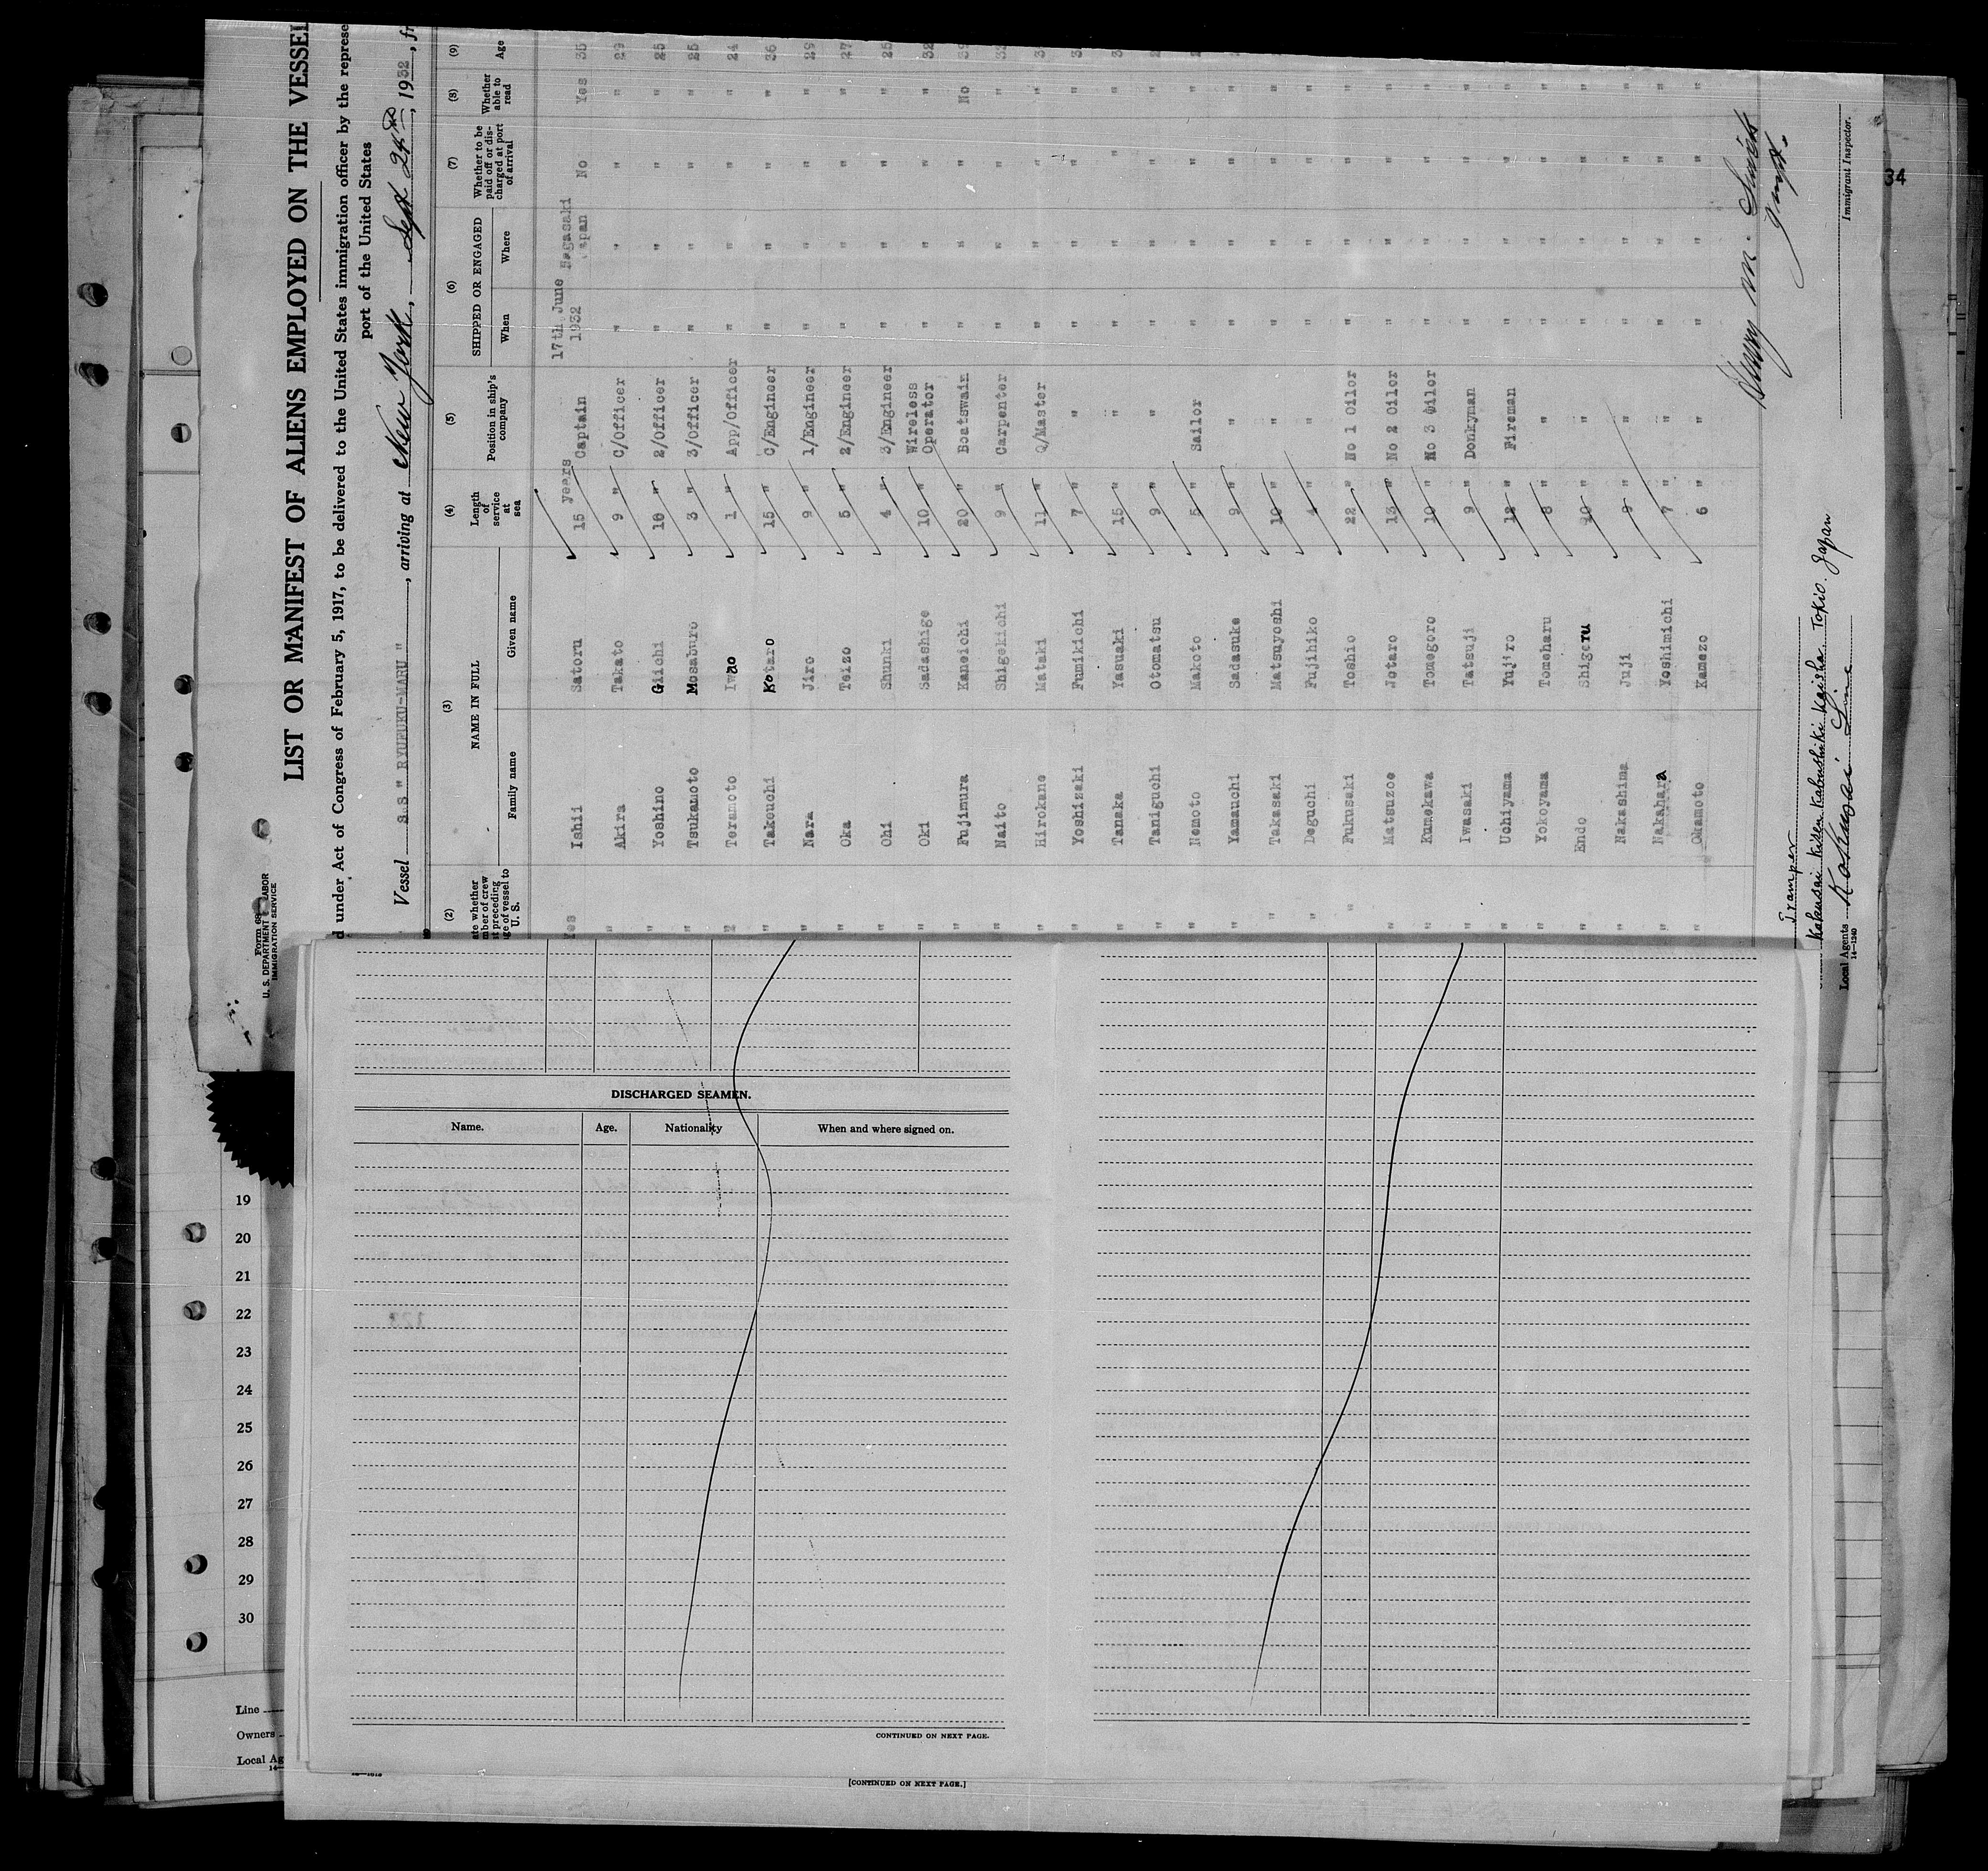 Form 689
U. S. DEPARTMENT OF LABOR
IMMIGRATION SERVICE
LIST OR MANIFEST OF ALIENS EMPLOYED ON THE VESSEL
d under Act of Congress of February 5, 1917, to be delivered to the United States immigration officer by the represe
port of the United States
Vessel S.S " RYUFUKU-MARU ", arriving at New York, Sept 24th, 1932, fr
(2) (3) (4) (5) (6) (7) (8) (9)
ate whether
mber of crew
t preceding
ge of vessel to
U. S.
NAME IN FULL
Family name Given name
Length of service at sea
Position in ship's company
SHIPPED OR ENGAGED
When Where
Whether to be paid off or discharged at port of arrival
Whether able to read
Age
17th June Nagasaki
Yes Ishii Satoru 15 years Captain 1932 Japan No Yes 35
" Akira Takato 9 " C/Officer " " " " 29
" Yoshino Giichi 10 " 2/Officer " " " " 25
" Tsukamoto Mosaburo 3 " 3/Officer " " " " 25
" Teramoto Iwao 1 " App/Officer " " " " 24
" Takeuchi Kotaro 15 " C/Engineer " " " " 36
" Nara Jiro 9 " 1/Engineer " " " " 29
" Oka Teizo 5 " 2/Engineer " " " " 27
" Ohi Shunki 4 " 3/Engineer " " " " 25
" Oki Sadashige 10 " Wireless Operator " " " " 32
" Fujimura Kaneichi 20 " Boatswain " " " No 39
" Naito Shigekichi 9 " Carpenter " " " " 32
" Hirokane Mataki 11 " Q/Master " " " "
" Yoshizaki Fumikichi 7 " " " " " "
" Tanaka Yasuaki 15 " " " " " "
" Taniguchi Otomatsu 9 " " " " " "
" Nemoto Makoto 5 " Sailor " " " "
" Yamauchi Sadasuke 9 " " " " " "
" Takasaki Matsuyoshi 10 " " " " " "
" Deguchi Fujihiko 4 " " " " " "
" Fukusaki Toshio 22 " No 1 Oilor " " " "
" Matsuzoe Jotaro 13 " No 2 Oilor " " " "
" Kumekawa Tomegoro 10 " No 3 Oilor " " " "
" Iwasaki Tatsuji 9 " Donkyman " " " "
" Uchiyama Yujiro 12 " Fireman " " " "
" Yokoyama Tomeharu 8 " " " " " "
" Endo Shigeru 20 " " " " " "
" Nakashima Juji 9 " " " " " "
" Nakahara Yoshimichi 7 " " " " " "
" Okamoto Kamezo 6 " " " " " "
Tramper
Kokusai Kisen Kabushiki Kaisha. Tokio. Japan
Local Agents Kokusai Line
14—1240
Immigrant Inspector.
34
DISCHARGED SEAMEN.
Name. Age. Nationality When and where signed on.
CONTINUED ON NEXT PAGE.
[CONTINUED ON NEXT PAGE.]
19
20
21
22
23
24
25
26
27
28
29
30
Line
Owners
Local Ag